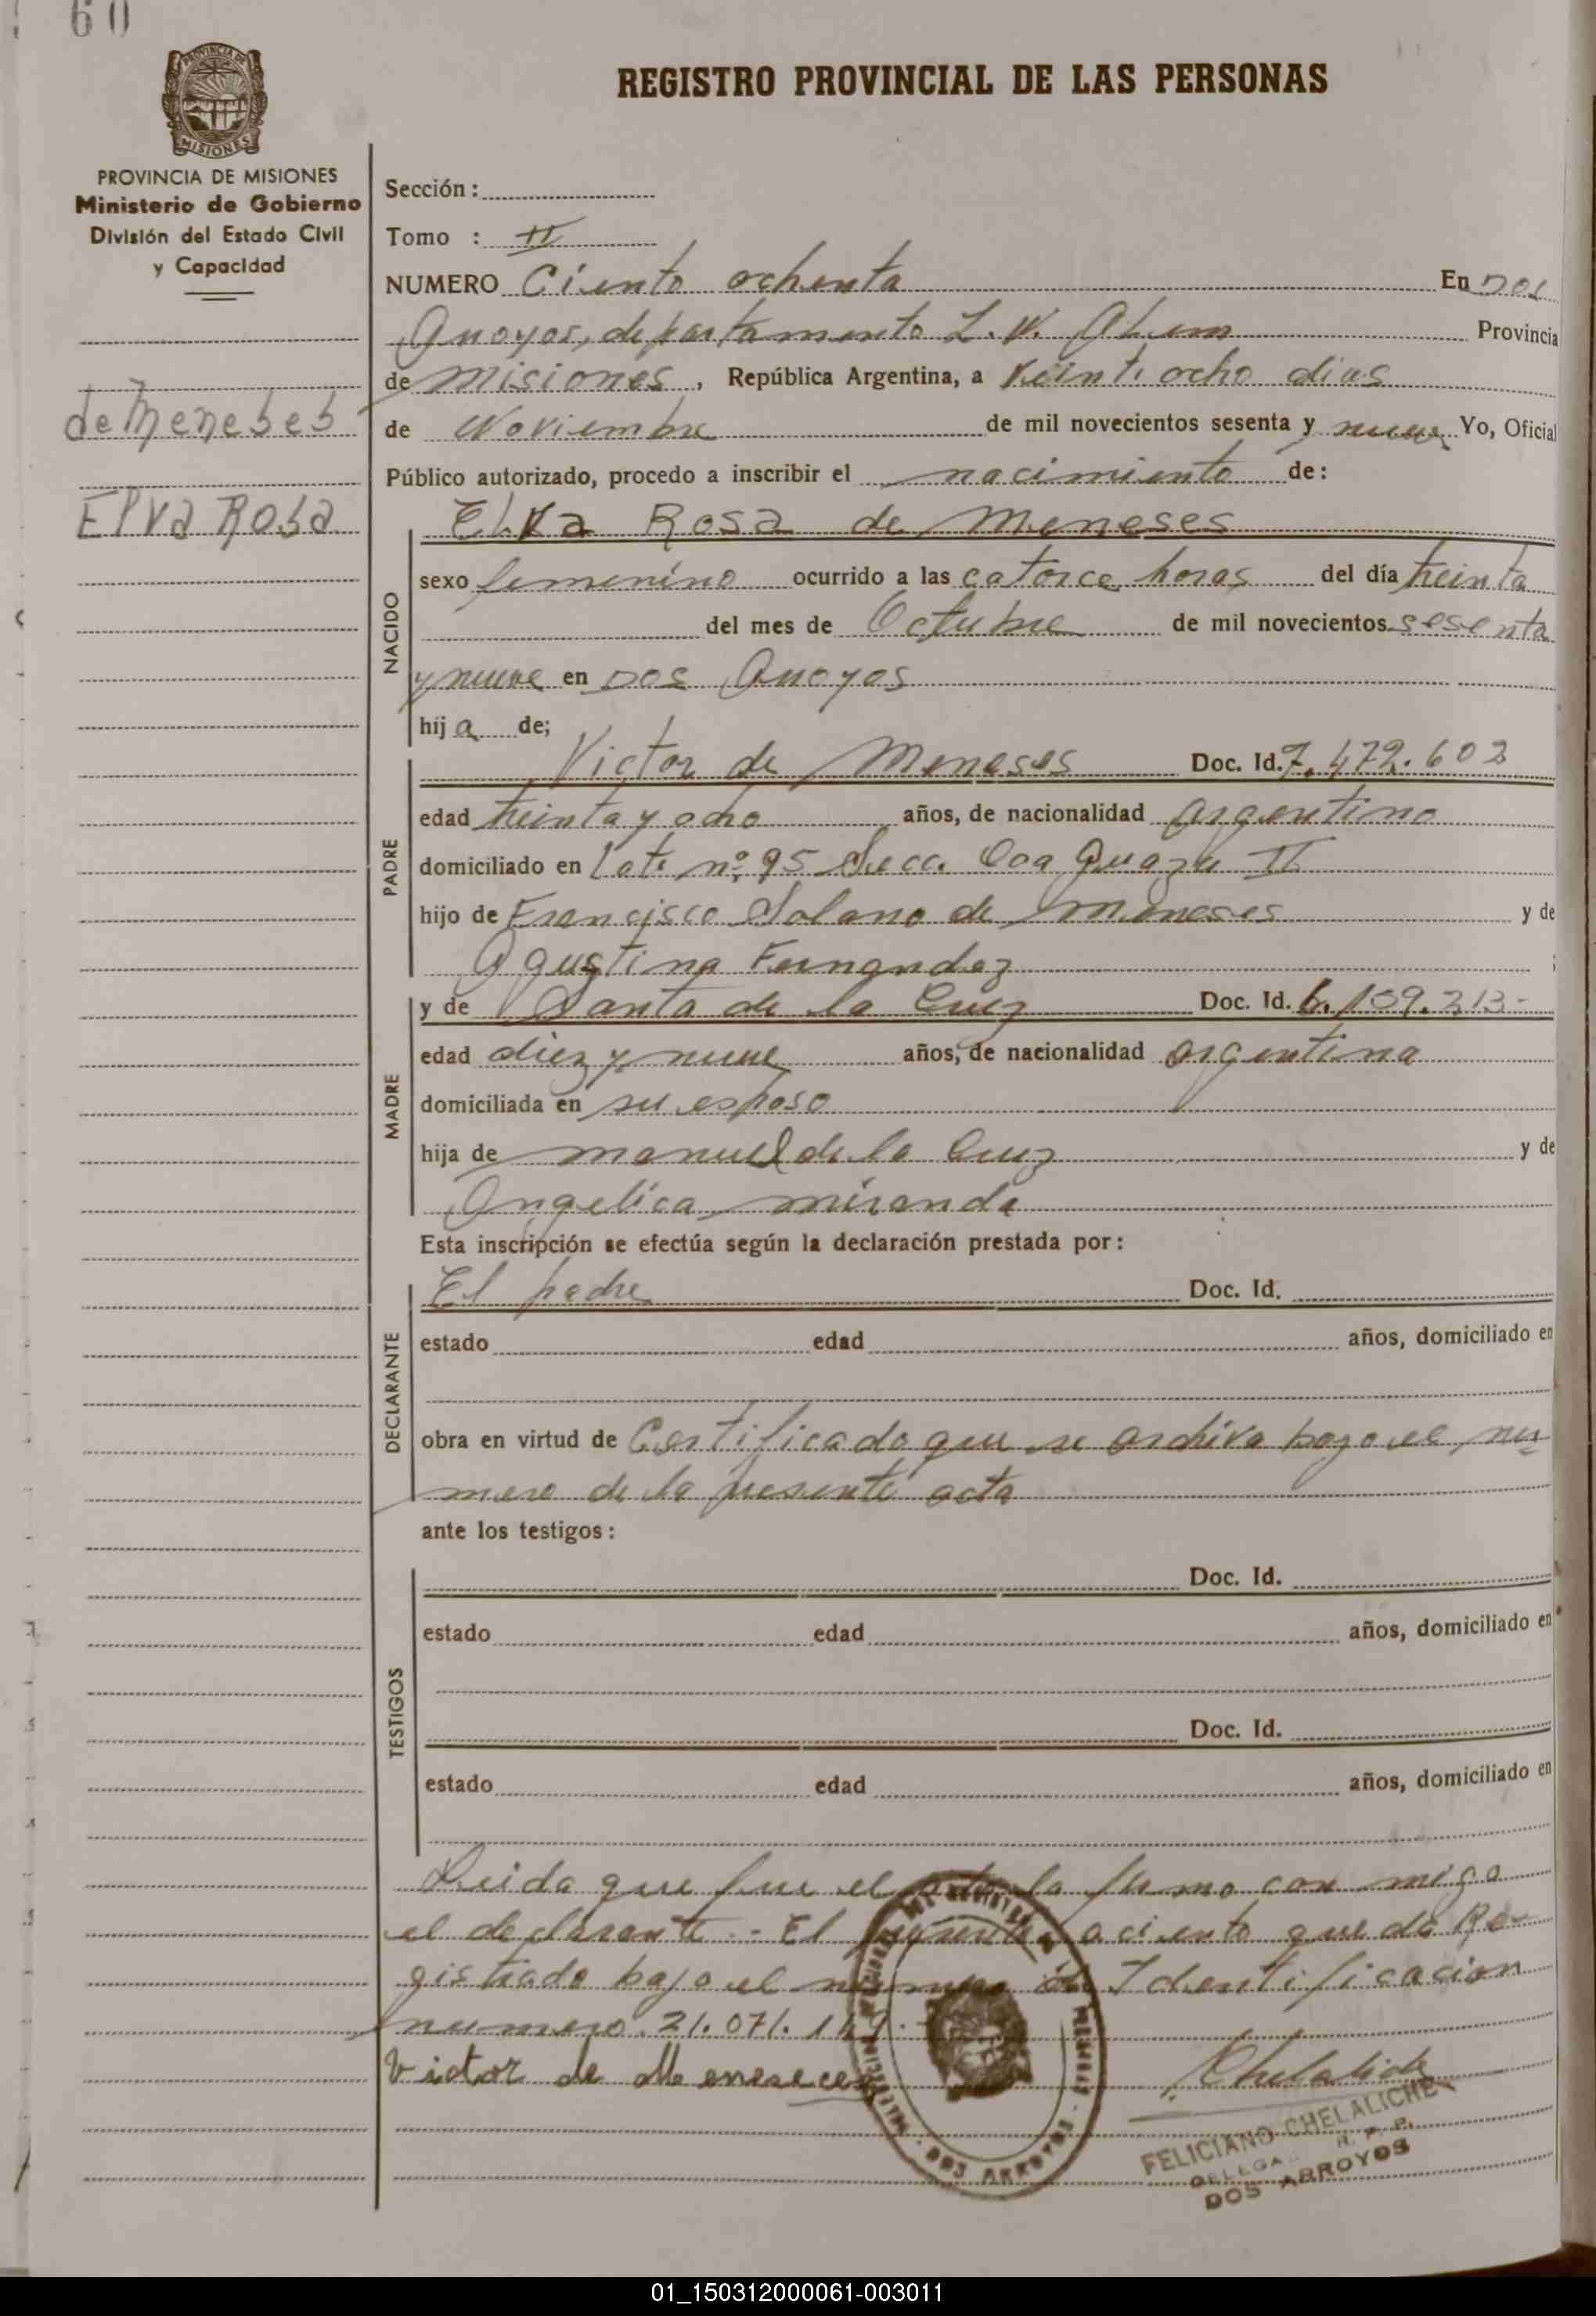 60
REGISTRO PROVINCIAL DE LAS PERSONAS
PROVINCIA DE
MISIONES
PROVINCIA DE MISIONES
Ministerio de Gobierno
División del Estado Civil
y Capacidad
de Meneses
Elva Rosa
Sección:
Tomo : II
NUMERO Ciento ochenta En Dos
Arroyos, departamento L. N. Alem Provincia
de Misiones, República Argentina, a Veintiocho dias
de Noviembre de mil novecientos sesenta y nueve Yo, Oficial
Público autorizado, procedo a inscribir el nacimiento de:
NACIDO
Elva Rosa de Meneses
sexo femenino ocurrido a las catorce horas del día treinta
del mes de Octubre de mil novecientos sesenta
y nueve en Dos Arroyos
hija de;
PADRE
Victor de Meneses Doc. Id. 7.472.602
edad treinta y ocho años, de nacionalidad argentino
domiciliado en Lote nº 95 Secc. Caa Guazu II
hijo de Francisco Solano de Meneses y de
Agustina Fernandez ;
MADRE
y de Santa de la Cruz Doc. Id. 6.159.313-
edad diez y nueve años, de nacionalidad argentina
domiciliada en su esposo
hija de Manuel de la Cruz y de
Angelica Miranda
Esta inscripción se efectúa según la declaración prestada por:
DECLARANTE
El padre Doc. Id.
estado edad años, domiciliado en
obra en virtud de Certificado que se archiva bajo el nu
mero de la presente acta
ante los testigos:
TESTIGOS
Doc. Id.
estado edad años, domiciliado en
Doc. Id.
estado edad años, domiciliado en
Leida que fue el acta la firmo con migo
el declarante.- El presente nacimiento queda Re-
gistrado bajo el numero de Identificacion
numero 21.071.
Victor de Menesecez Chelaliche
DOS ARROYOS
FELICIANO CHELALICHE
R. P. P.
DOS ARROYOS
01_150312000061-003011